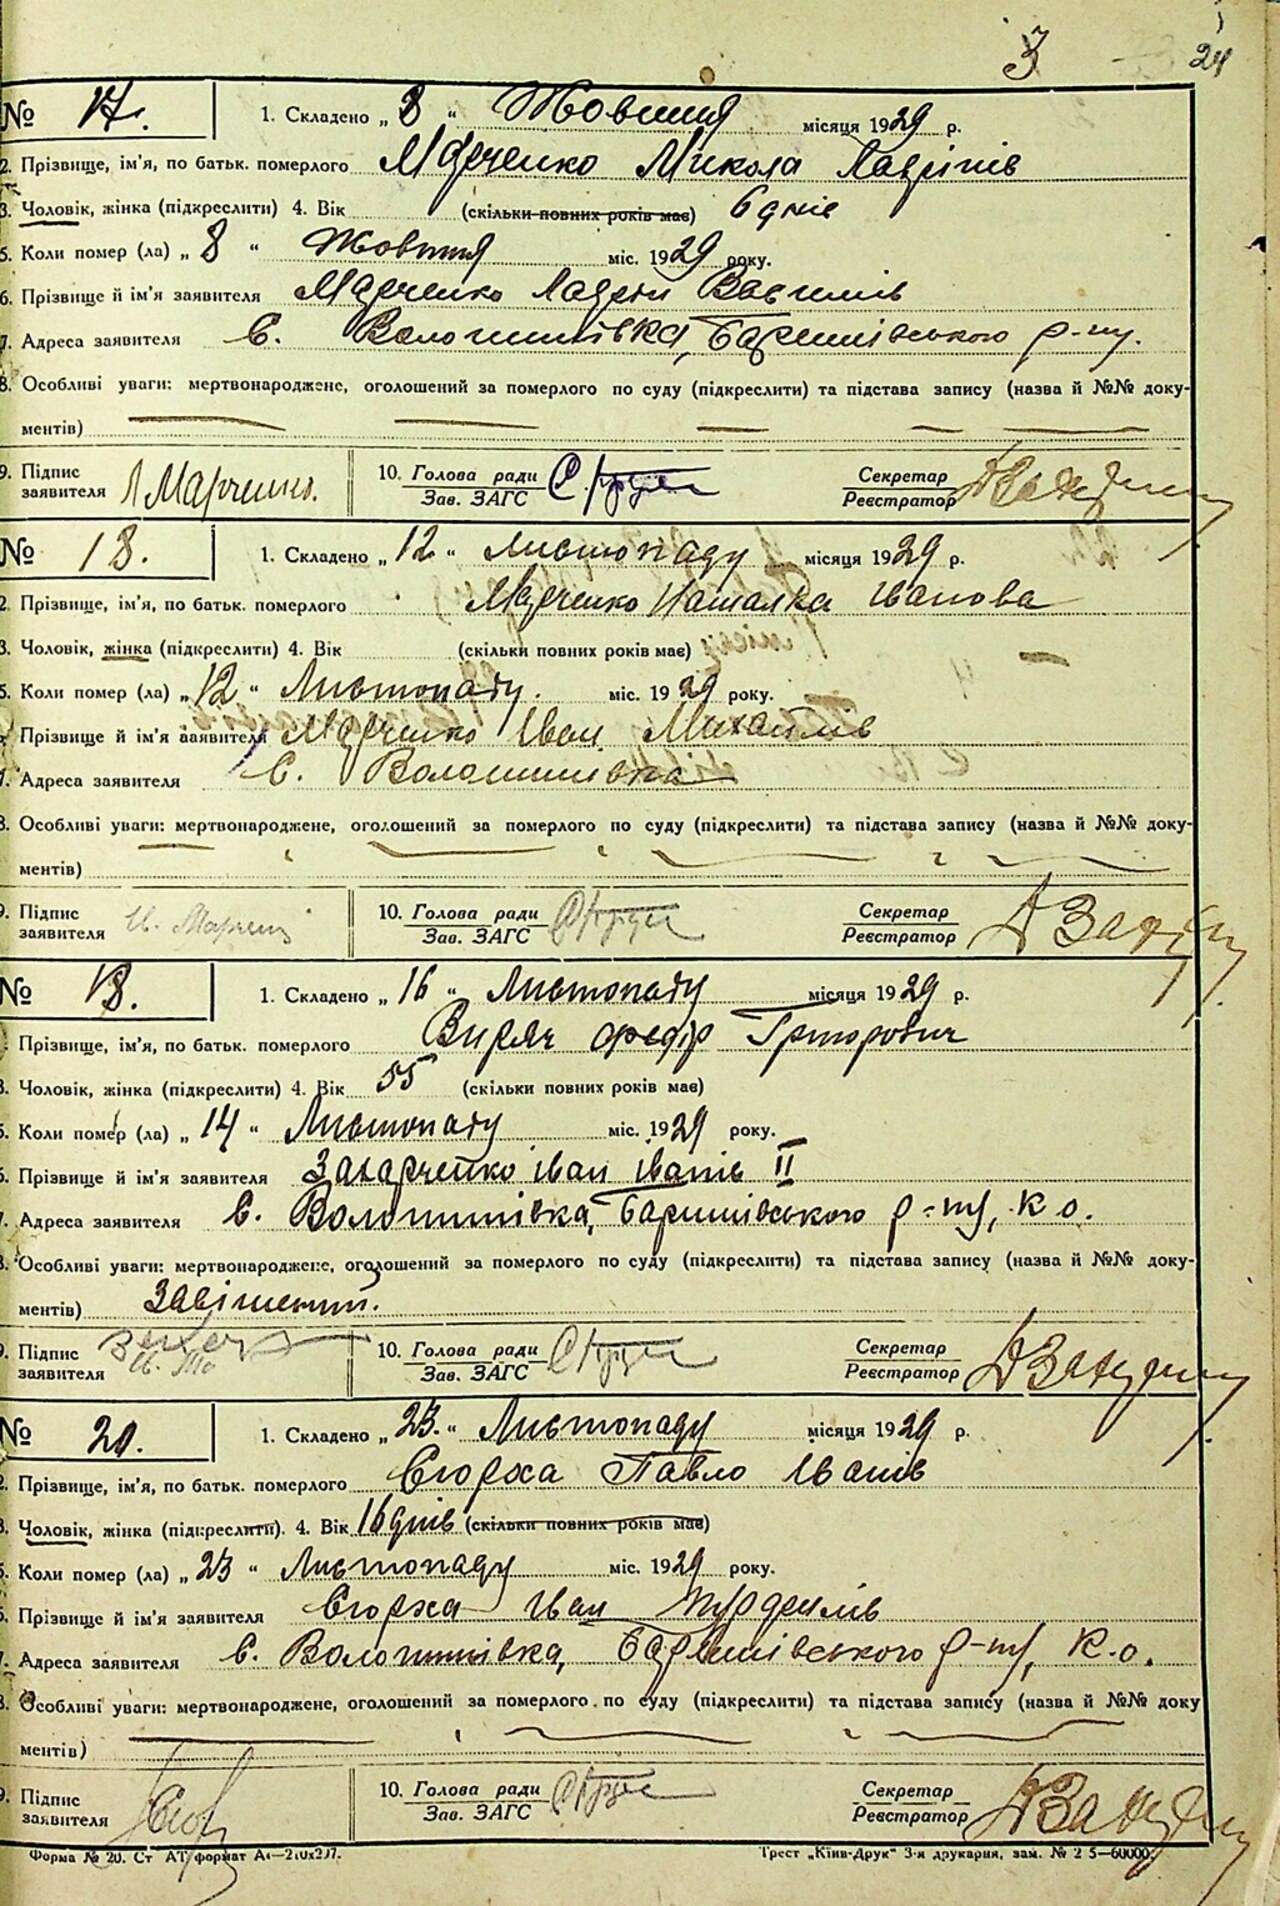 3 24
№ 17. 1. Складено „ 8 “ Жовтня місяця 1929 р.
2. Прізвище, ім'я, по батьк. померлого Марченко Микола Лаврінів
3. Чоловік, жінка (підкреслити) 4. Вік (скільки повних років має) 6 днів
5. Коли помер (ла) „ 8 “ Жовтня міс. 1929 року.
6. Прізвище й ім'я заявителя Марченко Лаврін Василів
7. Адреса заявителя с. Волошинівка, Баришівського р-ну.
8. Особливі уваги: мертвонароджене, оголошений за померлого по суду (підкреслити) та підстава запису (назва й №№ доку-
ментів)
9. Підпис заявителя Л Марченко. 10. Голова ради Зав. ЗАГС Секретар Реєстратор
№ 18. 1. Складено „ 12 “ Листопаду місяця 1929 р.
2. Прізвище, ім'я, по батьк. померлого Марченко Наталка Іванова
3. Чоловік, жінка (підкреслити) 4. Вік (скільки повних років має) —
5. Коли помер (ла) „ 12 “ Листопаду. міс. 1929 року.
Прізвище й ім'я заявителя Марченко Іван Михайлів
7. Адреса заявителя с. Волошинівка
8. Особливі уваги: мертвонароджене, оголошений за померлого по суду (підкреслити) та підстава запису (назва й №№ доку-
ментів)
9. Підпис заявителя Ів. Марченко 10. Голова ради Зав. ЗАГС Секретар Реєстратор
№ 1. Складено „ 16 “ Листопаду місяця 1929 р.
Прізвище, ім'я, по батьк. померлого Федір Григорович
3. Чоловік, жінка (підкреслити) 4. Вік 55 (скільки повних років має)
5. Коли помер (ла) „ 14 “ Листопаду міс. 1929 року.
6. Прізвище й ім'я заявителя Захарченко Іван Іванів II
7. Адреса заявителя с. Волошинівка, Баришівського р-ну, К о.
8. Особливі уваги: мертвонароджене, оголошений за померлого по суду (підкреслити) та підстава запису (назва й №№ доку-
ментів) Завішений.
9. Підпис заявителя 10. Голова ради Зав. ЗАГС Секретар Реєстратор
№ 20. 1. Складено „ 23. “ Листопаду місяця 1929 р.
2. Прізвище, ім'я, по батьк. померлого Сюрха Павло Іванів
3. Чоловік, жінка (підкреслити). 4. Вік 16 днів (скільки повних років має)
5. Коли помер (ла) „ 23 “ Листопаду міс. 1929 року.
6. Прізвище й ім'я заявителя Сюрха Іван
7. Адреса заявителя с. Волошинівка, Баришівського р-ну, К.о.
8. Особливі уваги: мертвонароджене, оголошений за померлого по суду (підкреслити) та підстава запису (назва й №№ доку
ментів)
9. Підпис заявителя 10. Голова ради Зав. ЗАГС Секретар Реєстратор
Форма № 20. Ст АТ формат А4—210х297. Трест „Київ-Друк“ 3-я друкарня, зам. № 2 5—60000.